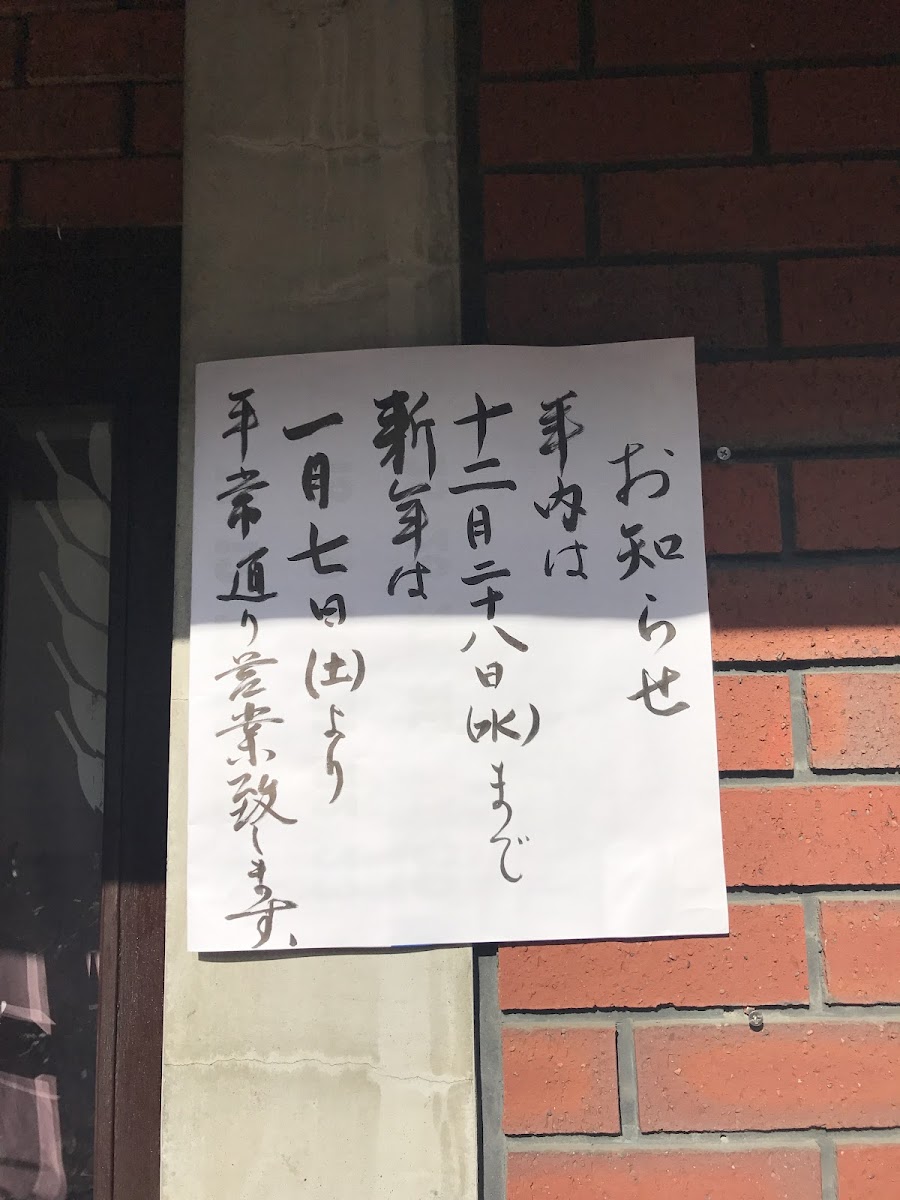 お知らせ
年内は
十二月二十八日(水)まで
新年は
一月七日(土)より
平常通り営業致します、